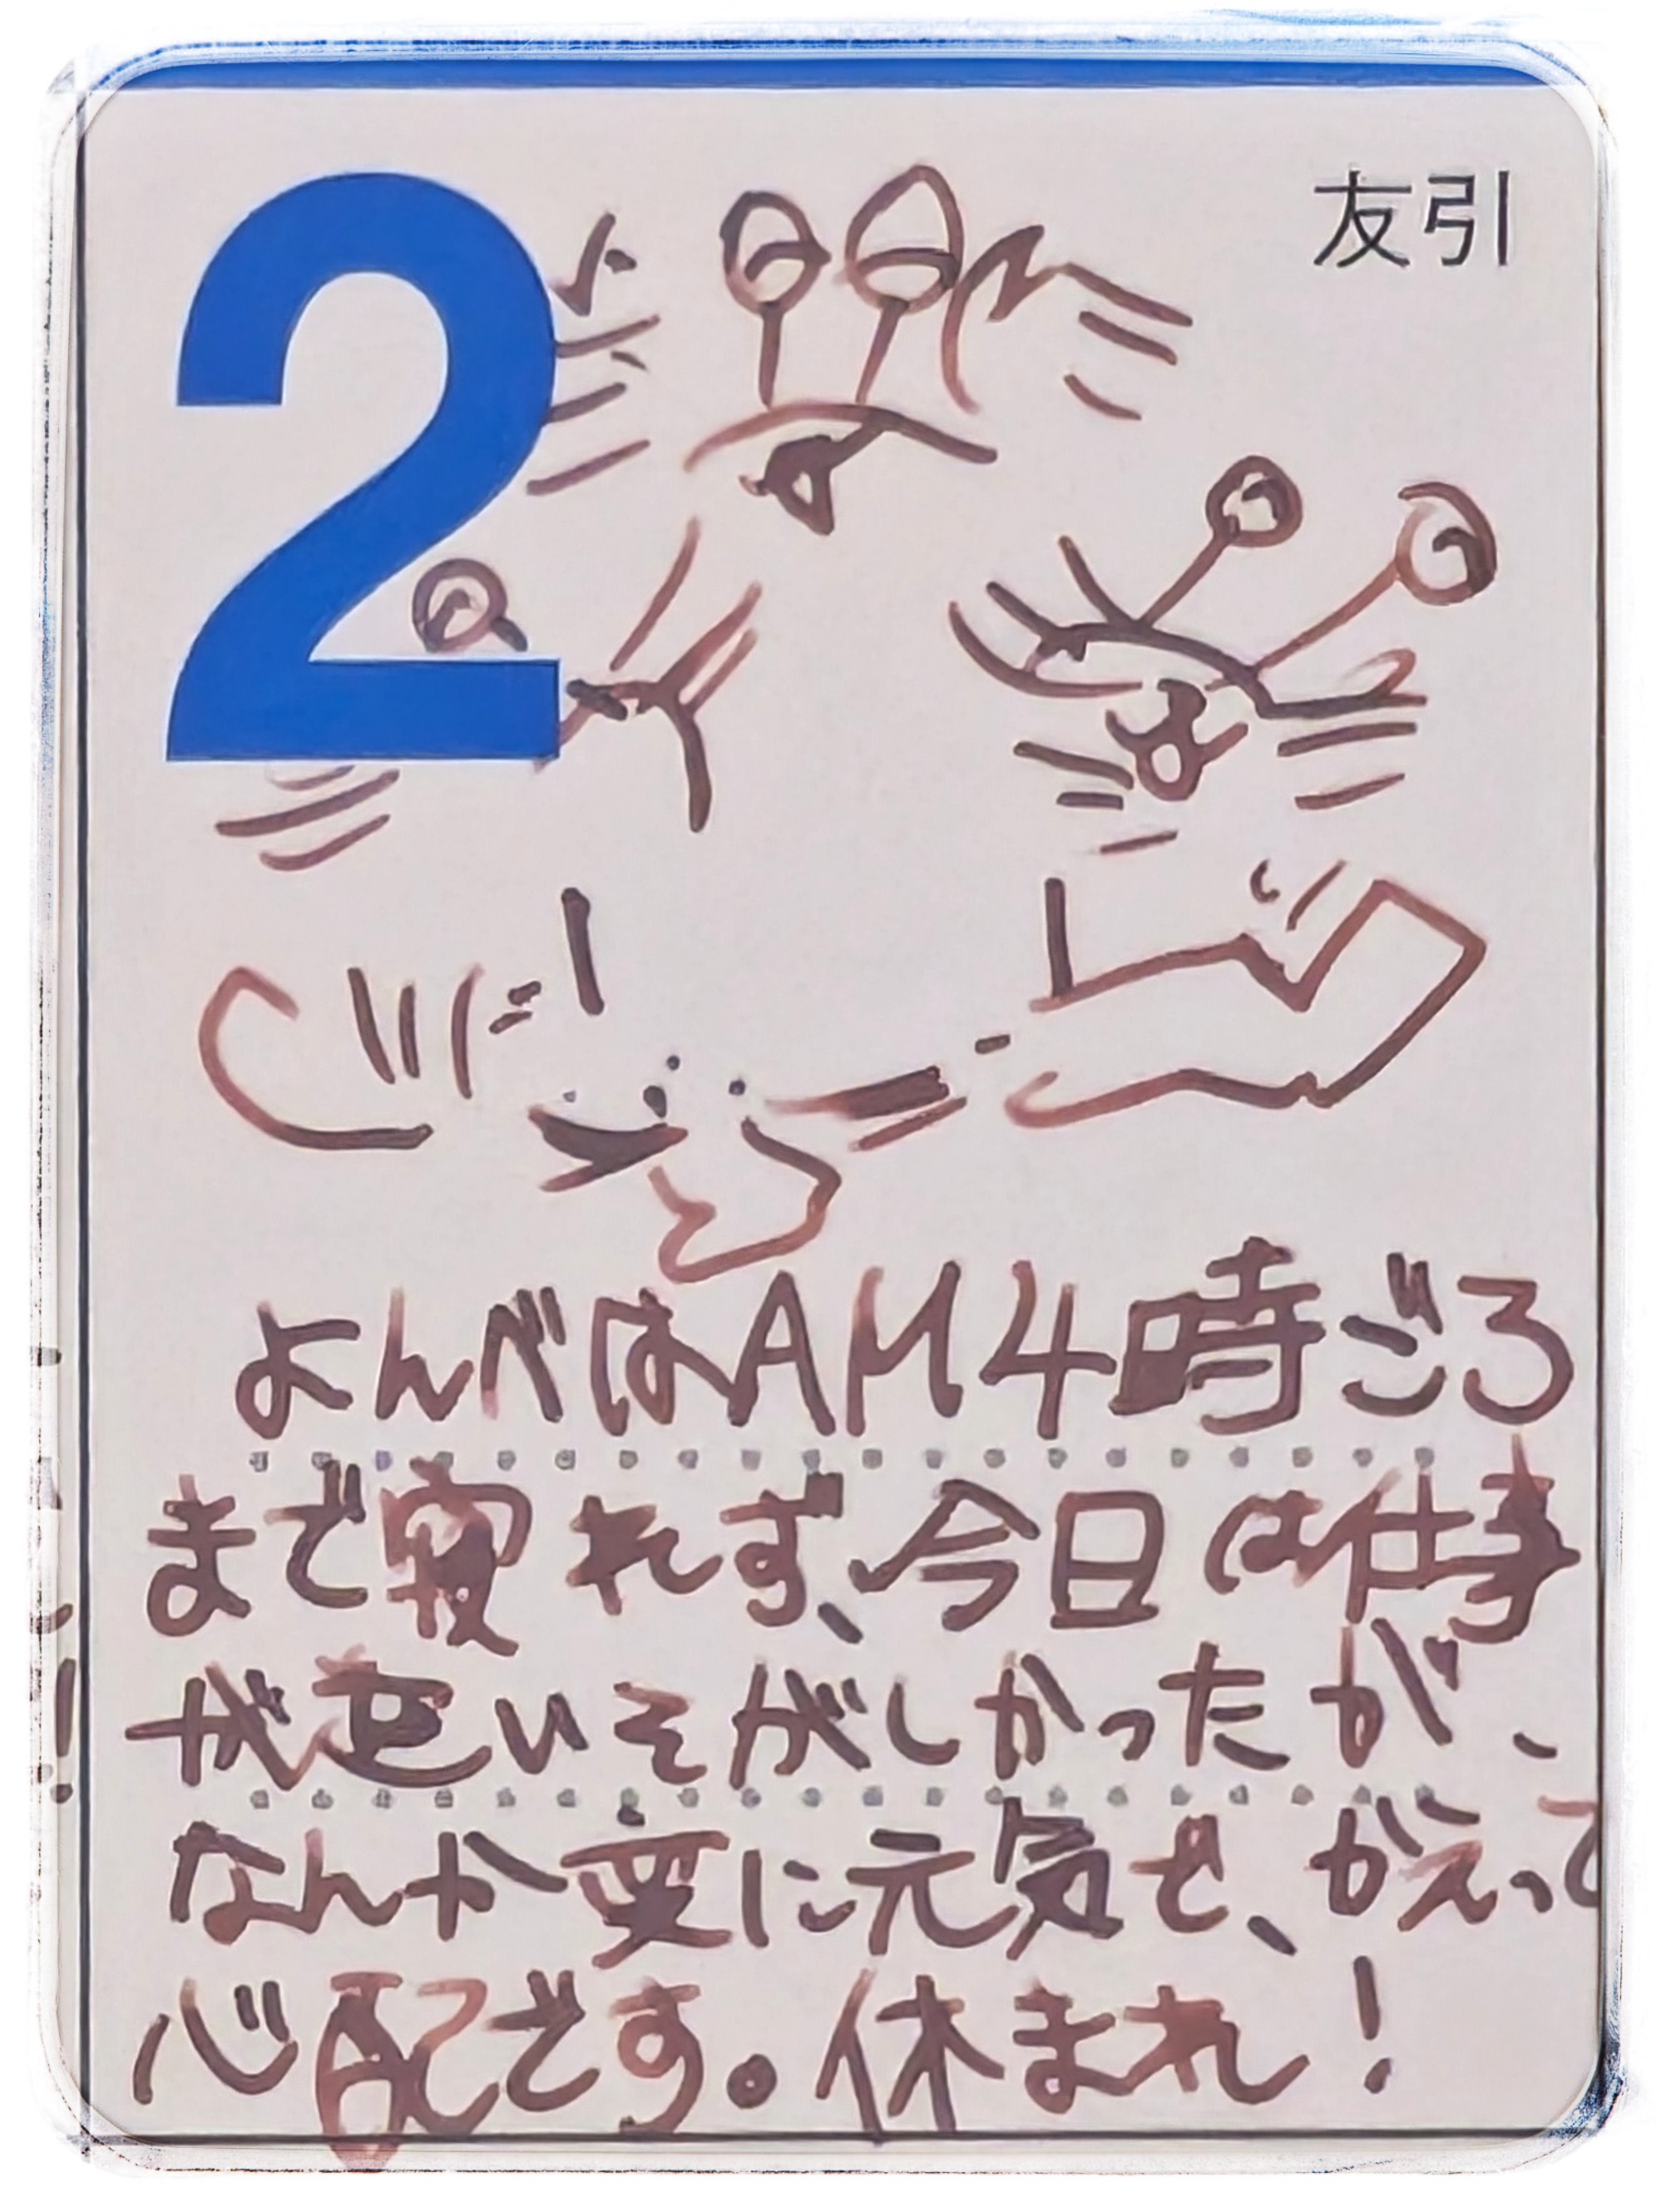 2
友引
よんべはAM4時ごろ
まで寝れず、今日は仕事
が色いそがしかったが、
なんか変に元気で、かえって
心配です。休まれ!